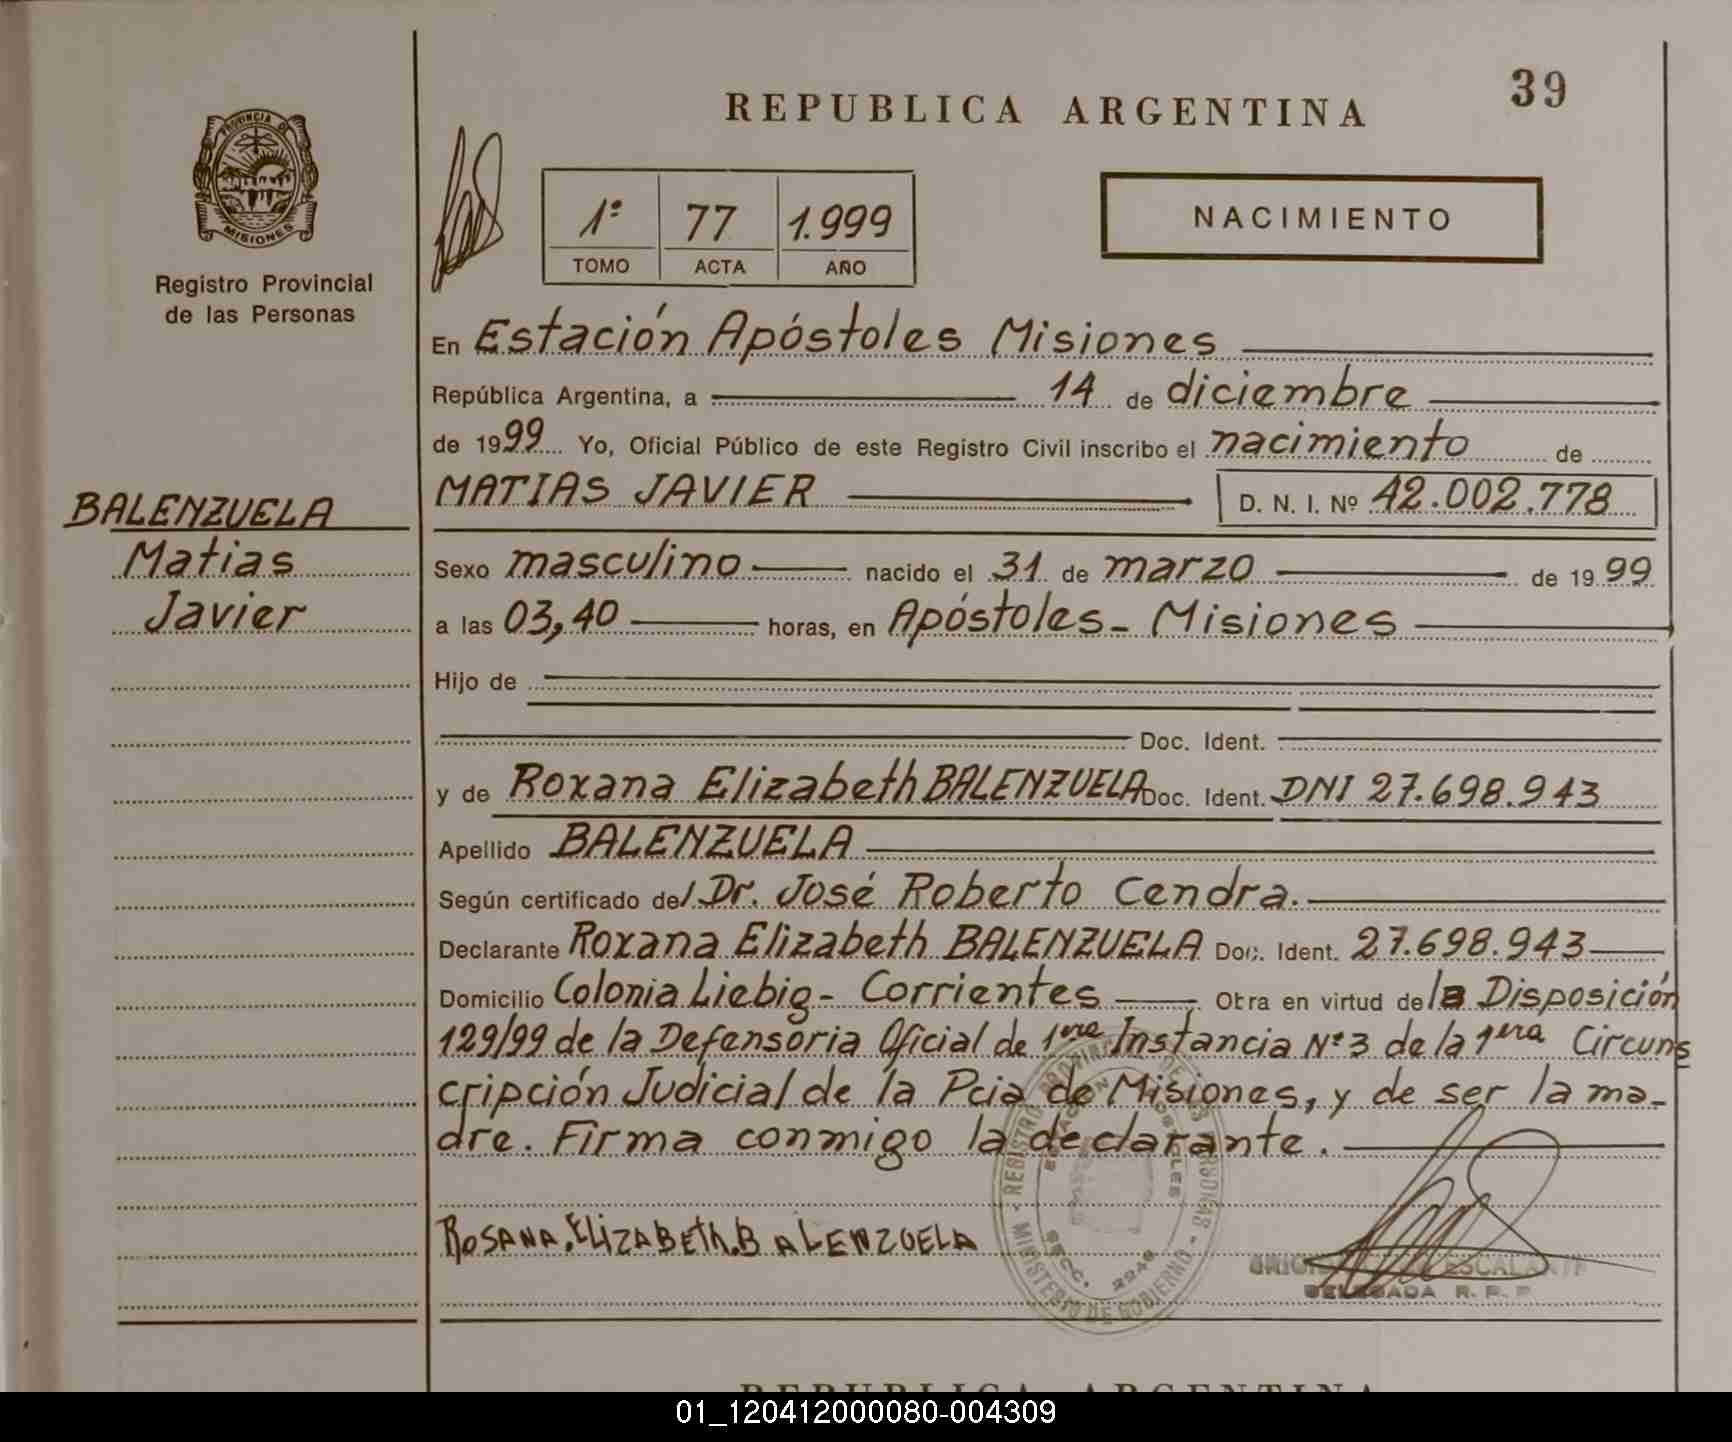 39
REPUBLICA ARGENTINA
PROVINCIA DE
MISIONES
Registro Provincial
de las Personas
1º 77 1.999
TOMO ACTA AÑO
NACIMIENTO
En Estación Apóstoles Misiones
República Argentina, a 14 de diciembre
de 1999 Yo, Oficial Público de este Registro Civil inscribo el nacimiento de
MATIAS JAVIER D. N. I. Nº 42.002.778
BALENZUELA
Matias
Javier
Sexo masculino nacido el 31 de marzo de 1999
a las 03,40 horas, en Apóstoles - Misiones
Hijo de
Doc. Ident.
y de Roxana Elizabeth BALENZUELA Doc. Ident. DNI 27.698.943
Apellido BALENZUELA
Según certificado del Dr. José Roberto Cendra.
Declarante Roxana Elizabeth BALENZUELA Doc. Ident. 27.698.943
Domicilio Colonia Liebig - Corrientes Obra en virtud de la Disposición
129/99 de la Defensoria Oficial de 1era Instancia Nº 3 de la 1era Circuns
cripción Judicial de la Pcia de Misiones, y de ser la ma-
dre. Firma conmigo la declarante.
ROSANA. ELIZABETH. BALENZUELA
MINISTERIO DE GOBIERNO
SECC.
ESCALANTE
DELEGADA R. P. P.
REPUBLICA ARGENTINA
01_120412000080-004309